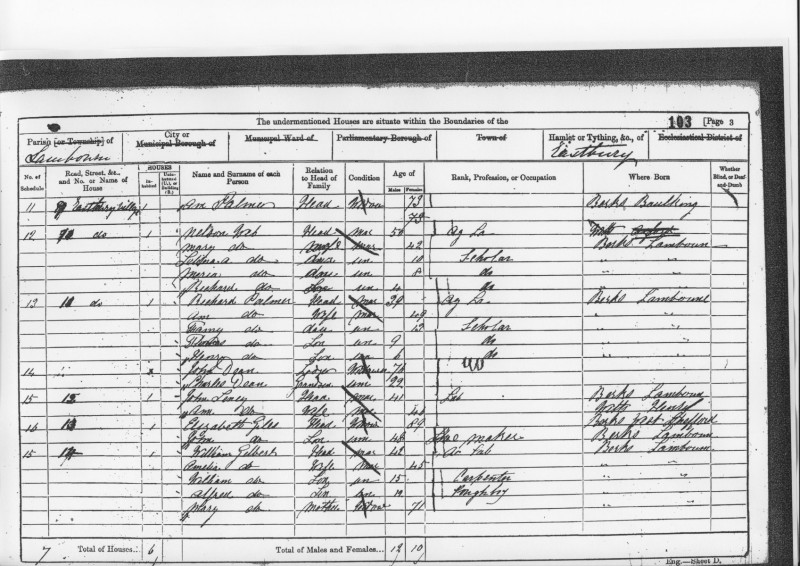 The undermentioned Houses are situate within the Boundaries of the 103 [Page 3
Parish [or Township] of City or Municipal Borough of Municipal Ward of Parliamentary Borough of Town of Hamlet or Tything, &c., of Ecclesiastical District of
Lambourn Eastbury
No. of Schedule Road, Street, &c., and No. or Name of House HOUSES Inhabited Uninhabited (U.), or Building (B.) Name and Surname of each Person Relation to Head of Family Condition Age of Males Females Rank, Profession, or Occupation Where Born Whether Blind, or Deaf-and-Dumb
11 9 Eastbury Village 1 Ann Palmer Head Widow 73 Berks Baulking
12 do 1 Head Mar 50 Ag La Wilts
Mary do Mar 42 Berks Lambourn
do un 10 Scholar
Maria do un 8 do
Richard do Son un 4 do
13 10 do 1 Richard Palmer Head Mar 39 Ag La Berks Lambourne
Ann do Wife Mar 49
do un 13 Scholar
Thomas do Son un 9 do
Henry do Son un 6 do
14 John Dean Lodger Widower 76
Charles Dean Grandson un 22
15 12 1 John Head Mar 41 Berks Lambourn
Ann do Wife Mar Wilts
16 13 1 Elizabeth Giles Head Widow 69 Berks East Shefford
John do Son un 46 maker Berks Lambourn
15 14 1 William Gilbert Head Mar 42 Ag Lab Berks Lambourn
Amelia do Wife Mar 45
William do Son un 15 Carpenter
Alfred do Son un Ploughboy
Mary do Mother Widow 71
7 Total of Houses... 6 Total of Males and Females... 12 10
Eng.—Sheet D.